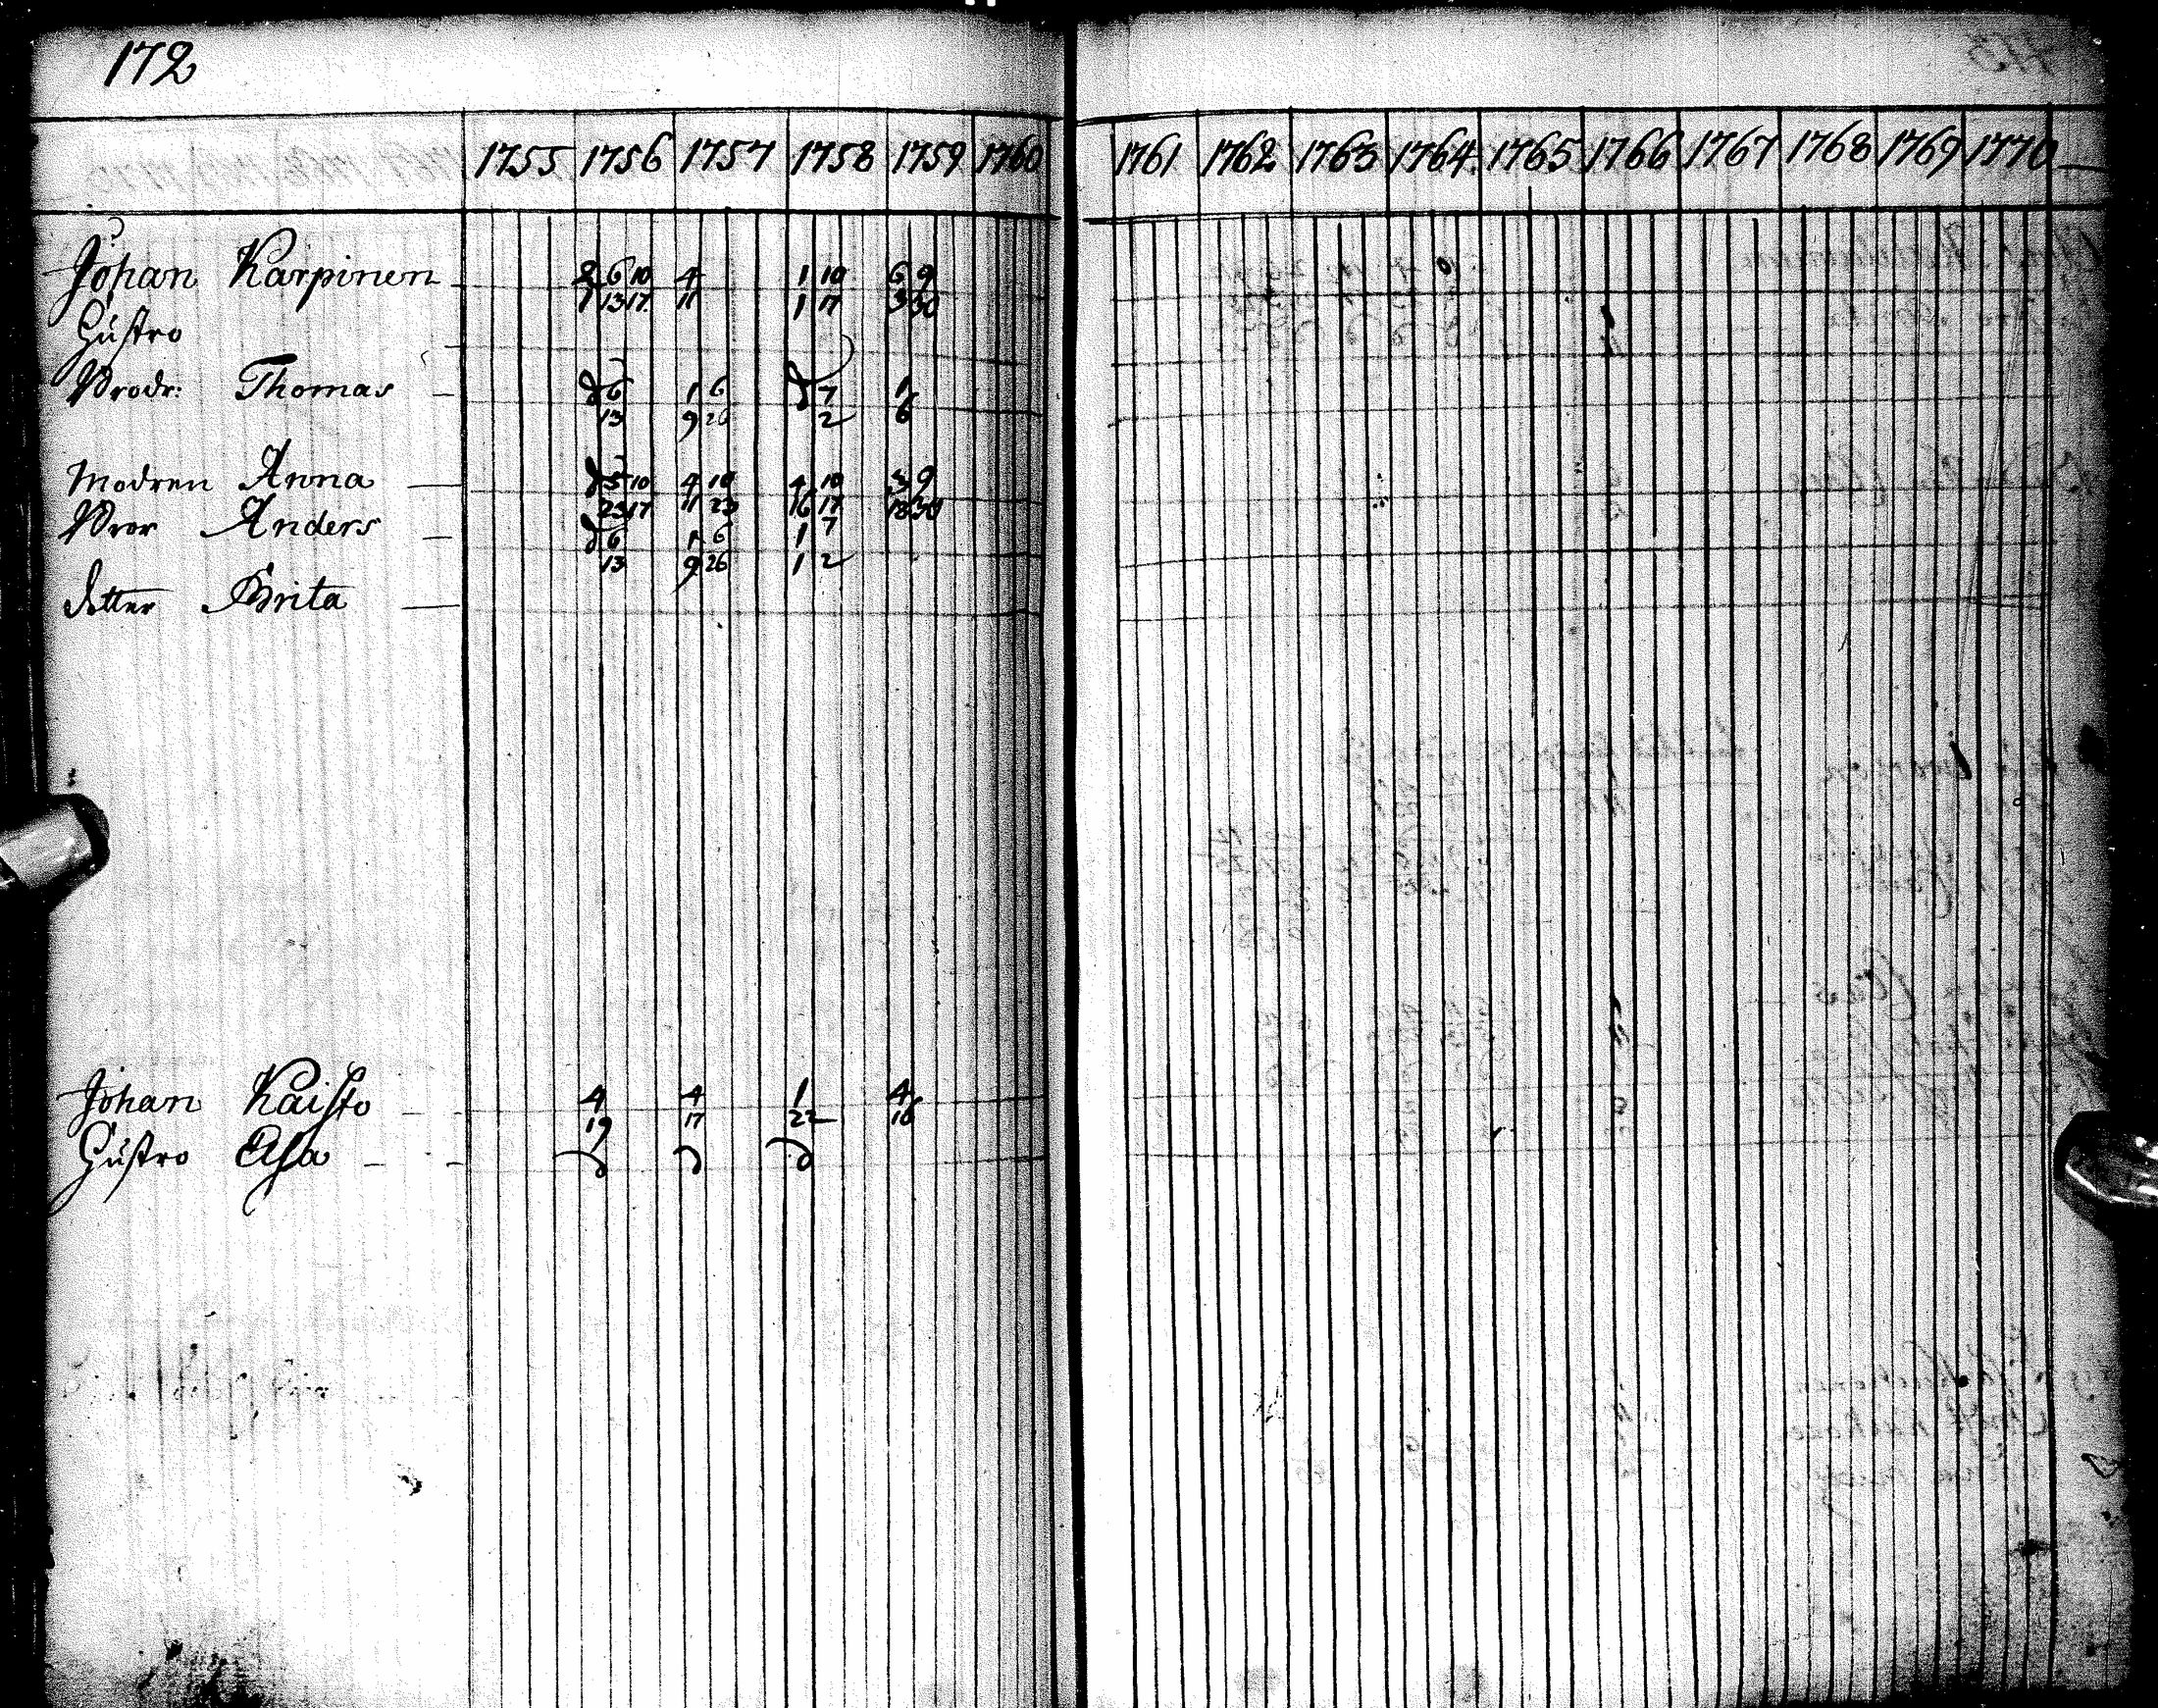 172
1755 1756 1757 1758 1759 1760 1761 1762 1763 1764 1765 1766 1767 1768 1769 1770
Johan Karpinen 8 6 10 4 1 10 6 9
1 13 17 11 1 17 3 30
Hustro
Brodr: Thomas 6 1 6 7 1
13 9 26 2 6
Modren Anna 5 10 4 10 4 10 3 9
23 17 11 23 16 17 18 30
Bror Anders 6 1 6 1 7
13 9 26 1 2
dotter Brita
Johan Kaisto 4 4 1 4
19 17 22 16
Hustro Asa